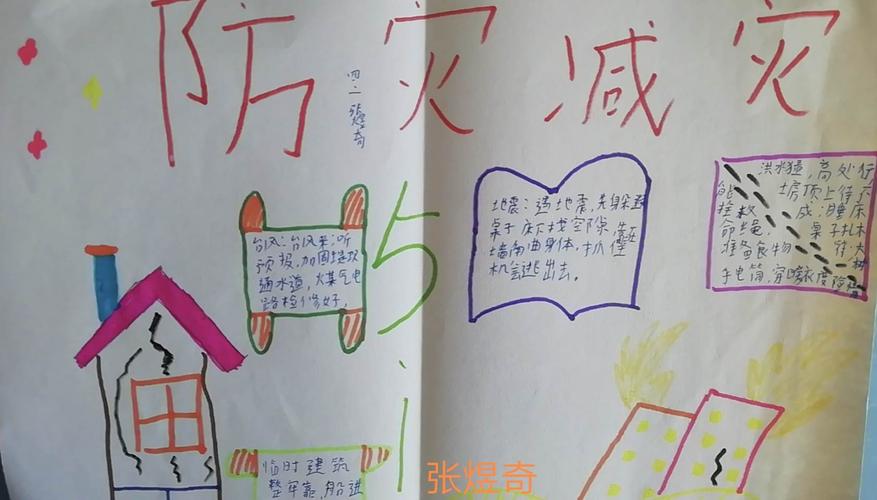 防灾减灾
四.二 张煜奇
台风:台风来,听
预报,加固堤坝
通水道,火煤气电
路检修好,
5.1
地震:遇地震,先躲避
桌子床下找空隙,靠在
墙角曲身体,抓住
机会逃出去。
洪水猛,高处行
房顶上待
桌子扎木
准备食物
手电筒,穿暖衣度
临时建筑
整牢靠,船进
张煜奇